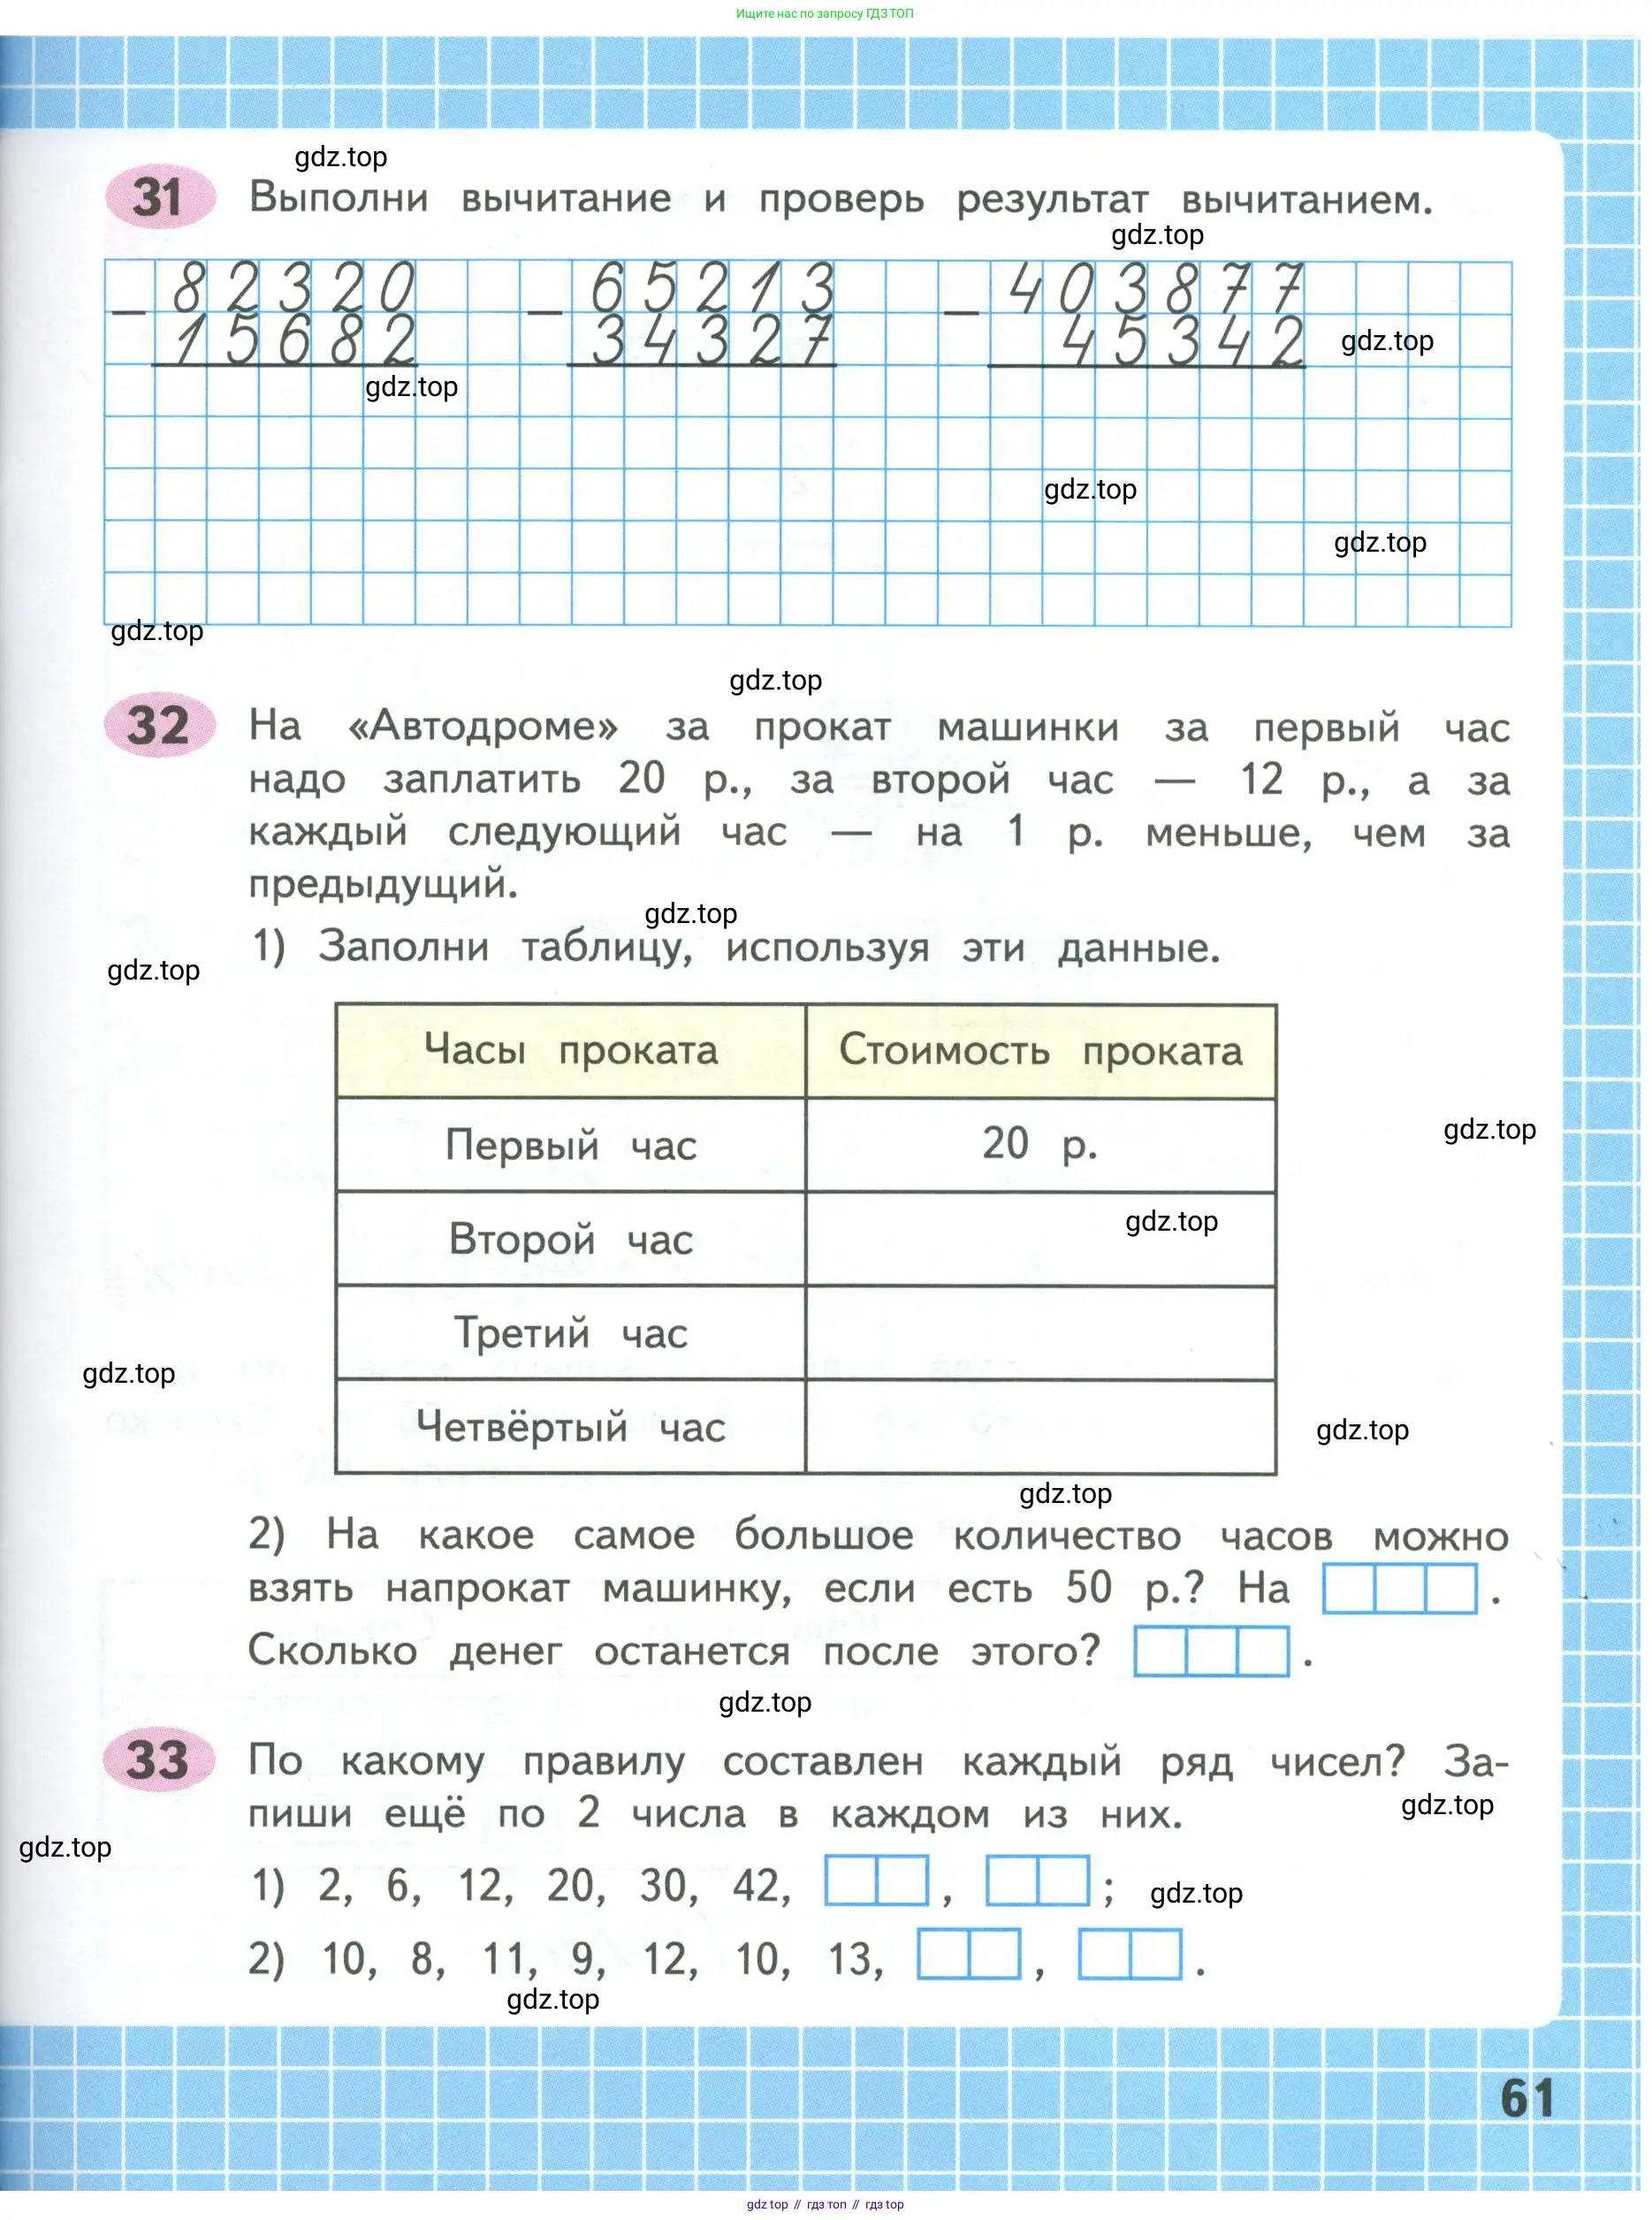 Ищите нас по запросу ГДЗ ТОП
gdz.top
31 Выполни вычитание и проверь результат вычитанием.
gdz.top
82320 65213 403877
− − −
15682 34327 45342 gdz.top
gdz.top
gdz.top
gdz.top
gdz.top
gdz.top
32 На «Автодроме» за прокат машинки за первый час
надо заплатить 20 р., за второй час — 12 р., а за
каждый следующий час — на 1 р. меньше, чем за
предыдущий.
gdz.top
1) Заполни таблицу, используя эти данные.
gdz.top
Часы проката Стоимость проката
Первый час 20 р.
gdz.top
Второй час gdz.top
Третий час
gdz.top
Четвёртый час
gdz.top
gdz.top
2) На какое самое большое количество часов можно
взять напрокат машинку, если есть 50 р.? На .
Сколько денег останется после этого? .
gdz.top
33 По какому правилу составлен каждый ряд чисел? За-
пиши ещё по 2 числа в каждом из них.
gdz.top
gdz.top
1) 2, 6, 12, 20, 30, 42, , ; gdz.top
2) 10, 8, 11, 9, 12, 10, 13, , .
gdz.top
61
gdz top // гдз топ // гдз top